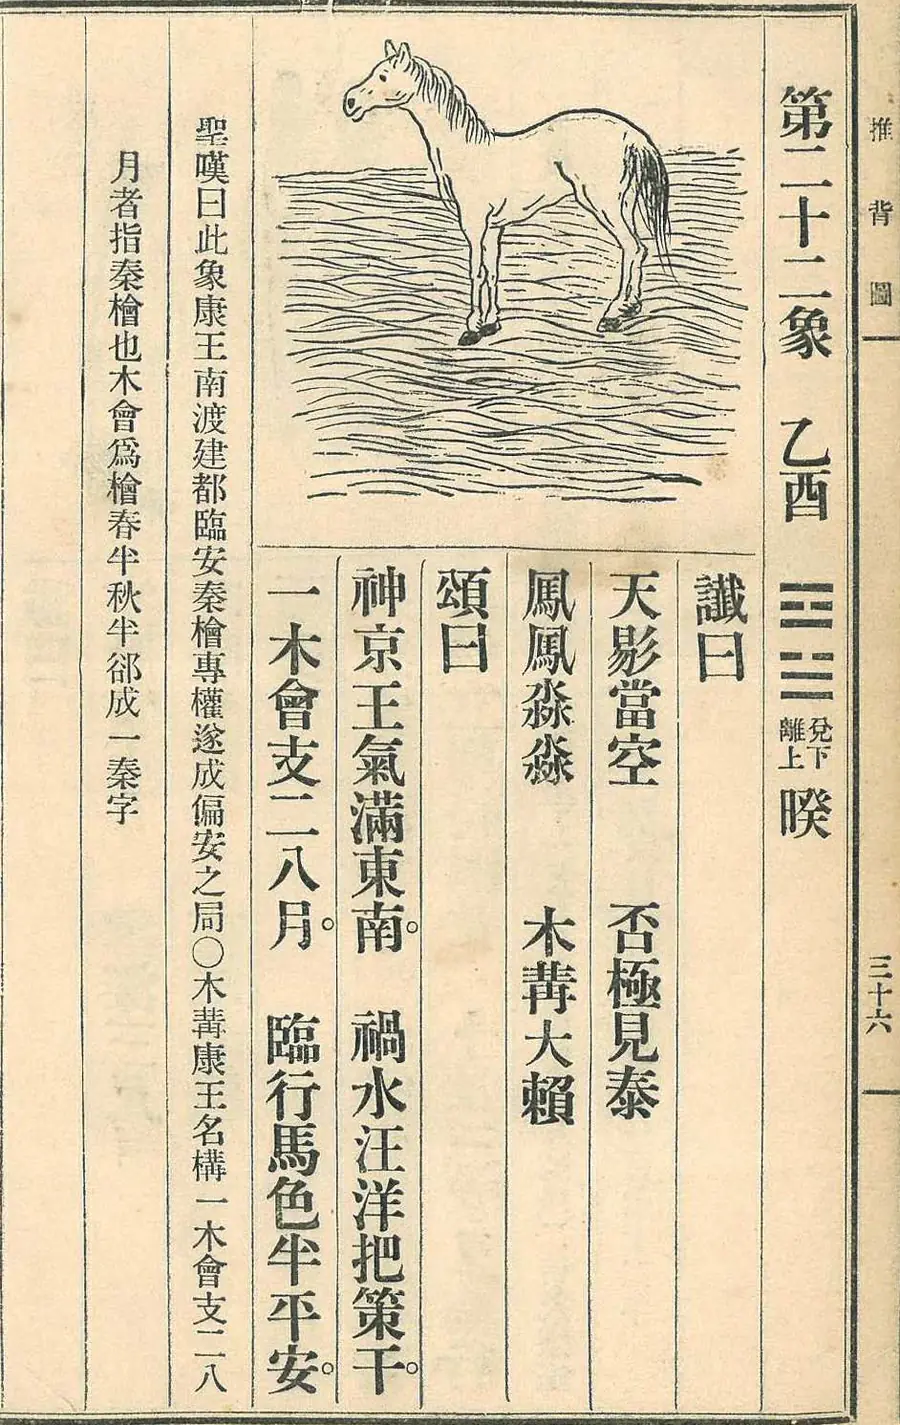 推背圖
三十六
第二十二象 乙酉 ䷥ 兌下離上 睽
讖曰
天髟當空 否極見泰
鳳鳳淼淼 木冓大賴
頌曰
神京王氣滿東南。 禍水汪洋把策干。
一木會支二八月。 臨行馬色半平安。
聖嘆曰此象康王南渡建都臨安秦檜專權遂成偏安之局○木冓康王名構一木會支二八
月者指秦檜也木會爲檜春半秋半郤成一秦字